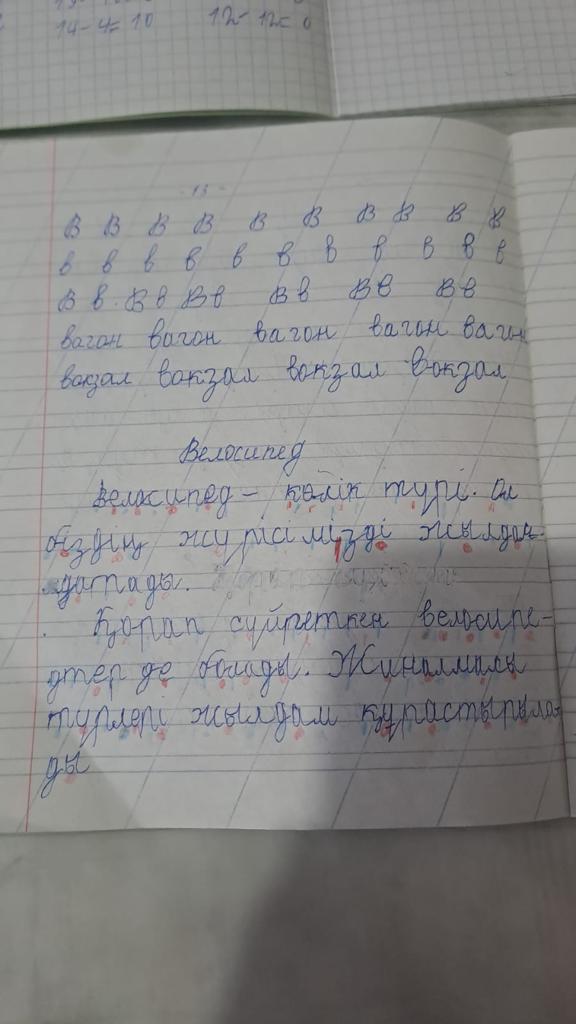 14 - 4 = 10 12 - 12 = 0
- 13 -
В В В В В В В В В В
в в в в в в в в в в в
В в Вв Вв Вв Вв Вв
вагон вагон вагон вагон вагон
вокзал вокзал вокзал вокзал
Велосипед
Велосипед – көлік түрі. Ол
біздің жүрісімізді жылдам-
датады.
Қорап сүйреткен велосипе-
дтер де болады. Жиналмалы
түрлері жылдам құрастырыла-
ды